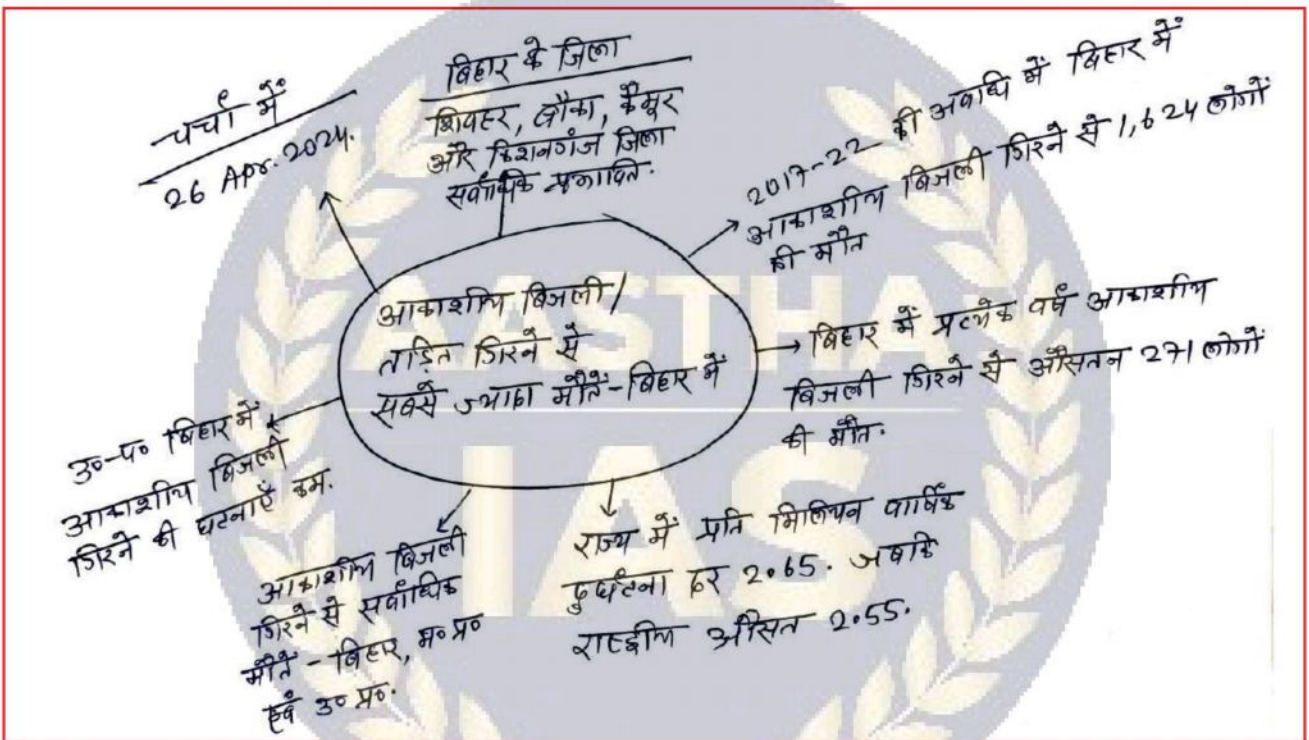 चर्चा में
26 Apr. 2024.
बिहार के जिला
शिवहर, बाँका, कैमूर
और किशनगंज जिला
सर्वाधिक प्रभावित.
2017-22 की अवधि में बिहार में
आकाशीय बिजली गिरने से 1,624 लोगों
की मौत
आकाशीय बिजली/
तड़ित गिरने से
सबसे ज्यादा मौतें-बिहार में
बिहार में प्रत्येक वर्ष आकाशीय
बिजली गिरने से औसतन 271 लोगों
की मौत.
उ०-प० बिहार में
आकाशीय बिजली
गिरने की घटनाएँ कम.
आकाशीय बिजली
गिरने से सर्वाधिक
मौतें - बिहार, म० प्र०
एवं उ० प्र०.
राज्य में प्रति मिलियन वार्षिक
दुर्घटना दर 2.65. जबकि
राष्ट्रीय औसत 2.55.
AASTHA
IAS